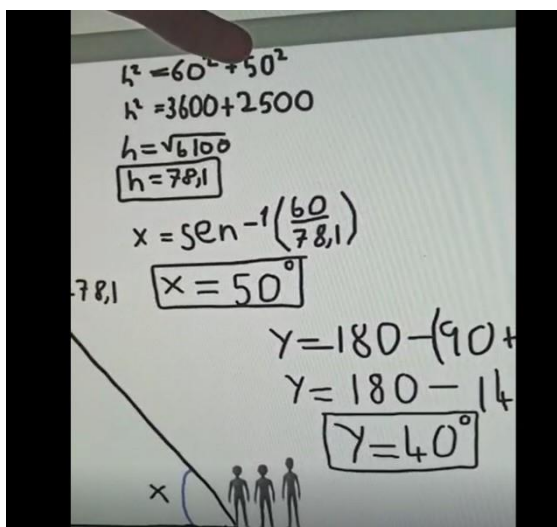 h² = 60² + 50²
h² = 3600 + 2500
h = √6100
h = 78,1
x = sen⁻¹(60/78,1)
78,1
x = 50°
y = 180 - (90 +
y = 180 - 14
y = 40°
x